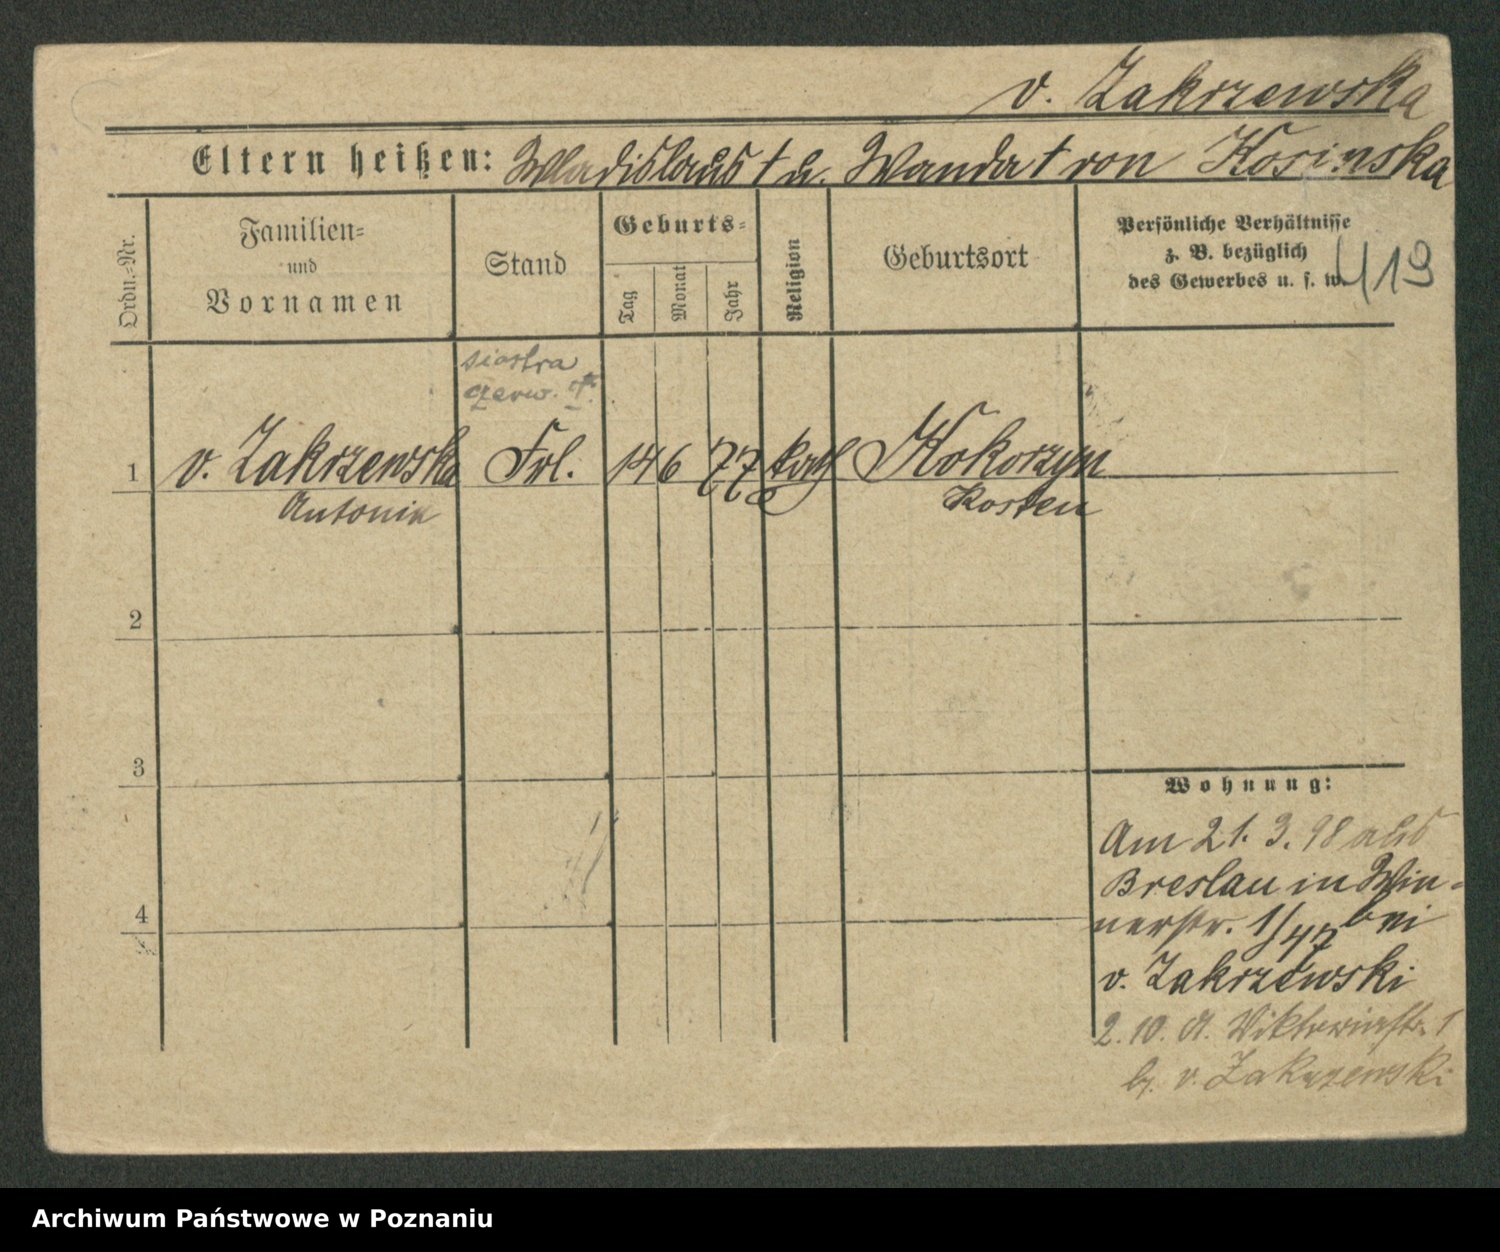 v. Zakrzewska
Eltern heißen: Wladislaus † u. Wanda † von Kosinska
Ordn.-Nr.
Familien-
und
Vornamen
Stand
Geburts-
Tag
Monat
Jahr
Religion
Geburtsort
Persönliche Verhältnisse
z. B. bezüglich
des Gewerbes u. s. w.
419
siostra
czerw. †.
1 v. Zakrzewska Frl. 14 6 77 kath Kokorzyn
Antonie Kosten
2
3
4
Wohnung:
Am 21. 3. 98 aus
Breslau in Win-
nerstr. 1/47 bei
v. Zakrzewski
2. 10. Viktoriastr. 1
b. v. Zakrzewski
Archiwum Państwowe w Poznaniu